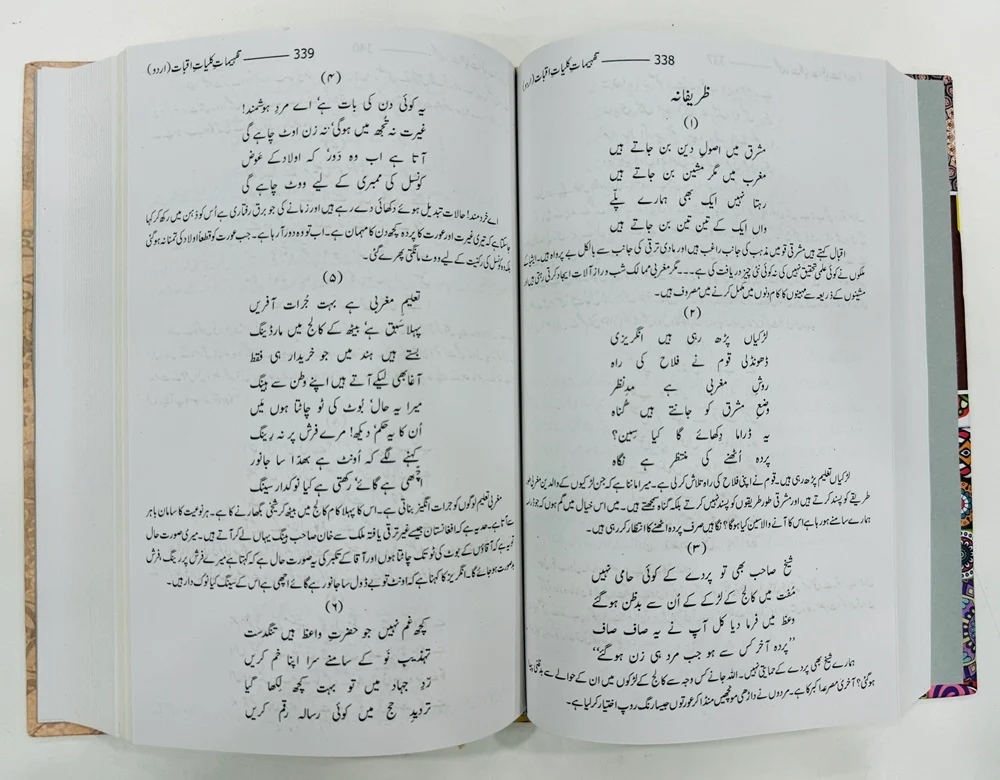 338 ——— تفہیمات کلیاتِ اقبات (اردو)
ظریفانہ
(۱)
مشرق میں اصولِ دین بن جاتے ہیں
مغرب میں مگر مشین بن جاتے ہیں
رہتا نہیں ایک بھی ہمارے پلّے
واں ایک کے تین تین بن جاتے ہیں
اقبال کہتے ہیں مشرقی قوم میں مذہب کی جانب راغب ہیں اور مادی ترقی کی جانب سے بالکل بے پرواہ ہیں۔
ملکوں نے کوئی علمی تحقیق نہیں کی نہ کوئی نئی چیز دریافت کی ہے۔۔۔ مگر مغربی ممالک شب و روز آلات ایجاد کرتی رہتی ہیں اور
مشینوں کے ذریعہ سے مہینوں کا کام دنوں میں مکمل کرنے میں مصروف ہیں۔
(۲)
لڑکیاں پڑھ رہی ہیں انگریزی
ڈھونڈلی قوم نے فلاح کی راہ
روشِ مغربی ہے مدِنظر
وضعِ مشرق کو جانتے ہیں گناہ
یہ ڈراما دکھائے گا کیا سین؟
پردہ اُٹھنے کی منتظر ہے نگاہ
لڑکیاں تعلیم پڑھ رہی ہیں۔ قوم نے اپنی فلاح کی راہ تلاش کر لی ہے۔ میرا ماننا ہے کہ جن لڑکیوں کے والدین مغربی طور
طریقے کو پسند کرتے ہیں اور مشرقی طور طریقوں کو پسند نہیں کرتے بلکہ گناہ سمجھتے ہیں۔ میں اس خیال میں گم ہوں کہ جو ڈرامہ
ہمارے سامنے ہو رہا ہے اس کا آنے والا سین کیا ہوگا؟ نگاہیں صرف پردہ اٹھنے کا انتظار کر رہی ہیں۔
(۳)
شیخ صاحب بھی تو پردے کے کوئی حامی نہیں
مُفت میں کالج کے لڑکے کے اُن سے بدظن ہوگئے
وعظ میں فرما دیا کل آپ نے یہ صاف صاف
”پردہ آخر کس سے ہو جب مرد ہی زن ہوگئے“
ہمارے شیخ بھی پردے کے حمایتی نہیں۔ اللہ جانے کس وجہ سے کالج کے لڑکوں میں ان کے حوالے سے بدظنی پیدا
ہوگئی؟ آخری مصرعہ اکبر کا ہے۔ مردوں نے داڑھی مونچھیں منڈا کر عورتوں جیسا رنگ روپ اختیار کر لیا ہے۔
339 ——— تفہیمات کلیاتِ اقبات (اردو)
(۴)
یہ کوئی دن کی بات ہے‘ اے مردِ ہوشمند!
غیرت نہ تجھ میں ہوگی‘ نہ زن اوٹ چاہے گی
آتا ہے اب وہ دَور‘ کہ اولاد کے عوض
کونسل کی ممبری کے لیے ووٹ چاہے گی
اے خردمند! حالات تبدیل ہوئے دکھائی دے رہے ہیں اور زمانے کی جو برق رفتاری ہے اُس کو ذہن میں رکھ کر کہا
جا سکتا ہے کہ تیری غیرت اور عورت کا پردہ کچھ دن کا مہمان ہے۔ اب تو وہ دور آ رہا ہے۔ جب عورت کو قطعاً اولاد کی تمنا نہ ہوگی
بلکہ وہ کونسل کی رکنیت کے لیے ووٹ مانگتی پھرے گی۔
(۵)
تعلیمِ مغربی ہے بہت جُرات آفریں
پہلا سَبق ہے‘ بیٹھ کے کالج میں مار ڈینگ
بستے ہیں ہند میں جو خریدار ہی فقط
آغا بھی لیکے آتے ہیں اپنے وطن سے ہینگ
میرا یہ حال‘ بُوٹ کی ٹو چاٹتا ہوں میں
اُن کا یہ حکم‘ دیکھ! مرے فرش پر نہ رینگ
کہنے لگے کہ اُونٹ ہے بھدّا سا جانور
اچھی ہے گائے‘ رکھتی ہے کیا نوکدار سینگ
مغربی تعلیم لوگوں کو جرات انگیز بناتی ہے۔ اس کا پہلا کام کالج میں بیٹھ کر شیخی بگھارنے کا ہے۔ ہر نوعیت کا سامان باہر
سے آتا ہے۔ حد یہ ہے کہ افغانستان جیسے غیر ترقی یافتہ ملک سے خان صاحب ہینگ یہاں لے کر آتے ہیں۔ میری صورت حال
تو یہ ہے کہ آقاؤں کے بوٹ کی نوک چاٹتا ہوں اور آقا کے تکبر کی یہ صورت حال ہے کہ کہتا ہے میرے فرش پر رینگ، فرش
بدصورت ہو جائے گا۔ انگریز کا کہنا ہے کہ اونٹ تو بے ڈول سا جانور ہے گائے اچھی ہے اس کے سینگ کیا نوک دار ہیں۔
(۶)
کچھ غم نہیں جو حضرتِ واعظ ہیں تنگدست
تہذیبِ نَو کے سامنے سر اپنا خم کریں
رَدِّ جہاد میں تو بہت کچھ لکھا گیا
تردیدِ حج میں کوئی رسالہ رقم کریں